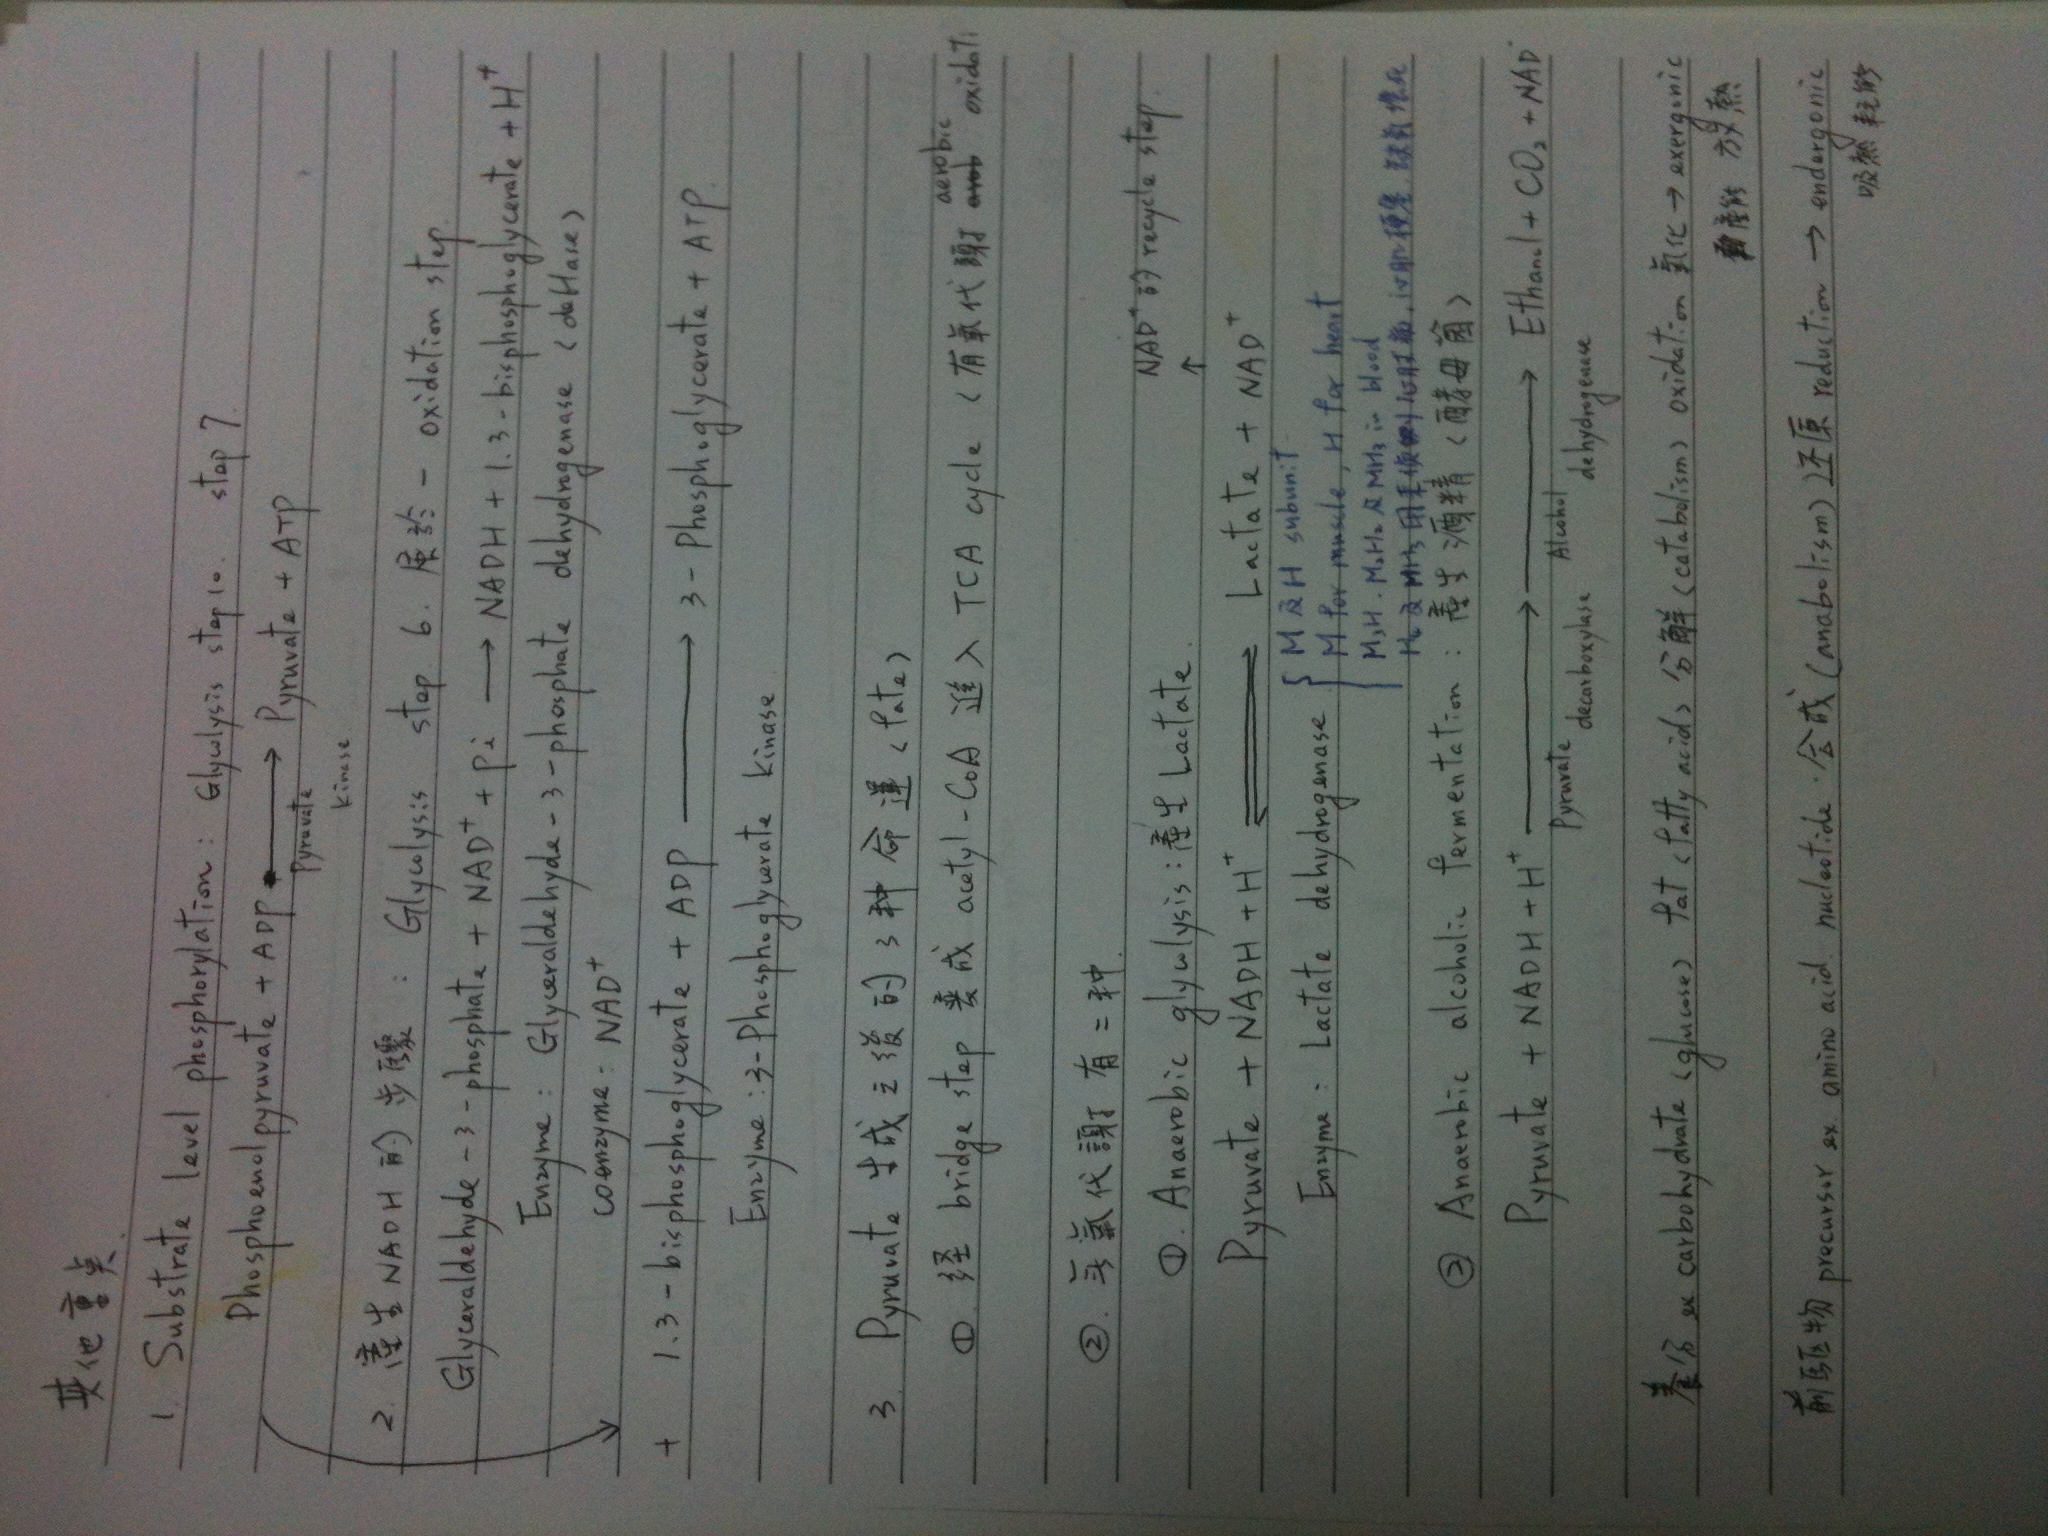 其他重点.
1. Substrate level phosphorylation : Glycolysis step 10. step 7.
Phosphoenolpyruvate + ADP ⟶ Pyruvate + ATP
Pyruvate
kinase
2. 產生NADH的步驟 : Glycolysis step 6. 屬於一 oxidation step.
Glyceraldehyde-3-phosphate + NAD⁺ + pi ⟶ NADH + 1.3-bisphosphoglycerate + H⁺
Enzyme : Glyceraldehyde-3-phosphate dehydrogenase (deHase)
coenzyme - NAD⁺
+ 1.3-bisphosphoglycerate + ADP ⟶ 3-Phosphoglycerate + ATP.
Enzyme : 3-Phosphoglycerate kinase
3. Pyruvate 生成之後的3种命運 (fate)
① 経 bridge step 變成 acetyl-CoA 進入 TCA cycle (有氧代謝 aerobic oxidati
②. 無氧代謝有二种.
NAD⁺ 的 recycle step.
↑
①. Anaerobic glycolysis : 產生 Lactate.
Pyruvate + NADH + H⁺ ⇌ Lactate + NAD⁺
Enzyme : Lactate dehydrogenase
M 及 H subunit
M for muscle, H for heart
M₃H. M₂H₂ 及 MH₃ in blood
H₄ 及 MH₃ 用來偵測心肌梗塞 缺氧壞死
② Anaerobic alcoholic fermentation : 產生酒精 (酵母菌)
Pyruvate + NADH + H⁺ ⟶ ⟶ Ethanol + CO₂ + NAD⁺
Pyruvate decarboxylase Alcohol dehydrogenase
養分 ex carbohydrate (glucose) fat (fatty acid) 分解 (catabolism) oxidation 氧化 → exergonic
產能 放熱
前驅物 precursor ex. amino acid. nucleotide . 合成 (anabolism) 还原 reduction → endergonic
吸熱 耗能